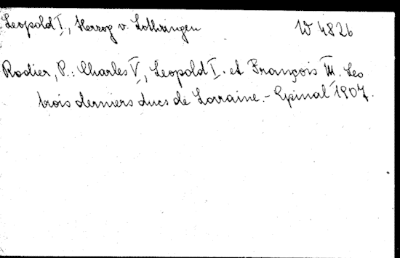 Leopold I, Herzog v. Lothringen W 4826
Rodier, P.: Charles V, Leopold I. et François III. Les
trois derniers ducs de Lorraine.- Epinal 1907.